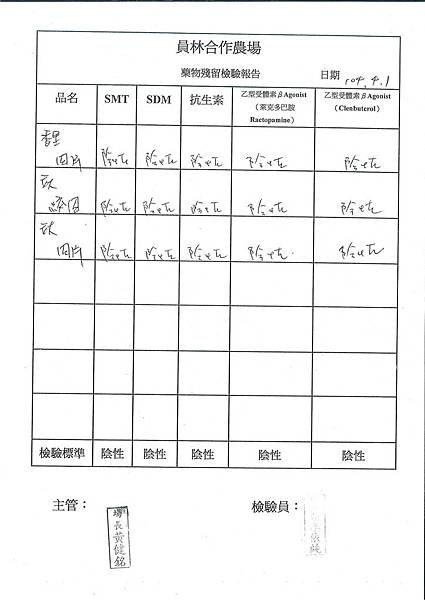 員林合作農場
藥物殘留檢驗報告
日期 104.4.1
品名 SMT SDM 抗生素 乙型受體素βAgonist（萊克多巴胺 Ractopamine） 乙型受體素βAgonist（Clenbuterol）
肉片 陰性 陰性 陰性 陰性 陰性
陰性 陰性 陰性 陰性 陰性
肉片 陰性 陰性 陰性 陰性 陰性
檢驗標準 陰性 陰性 陰性 陰性 陰性
主管： 場長黃健銘
檢驗員：